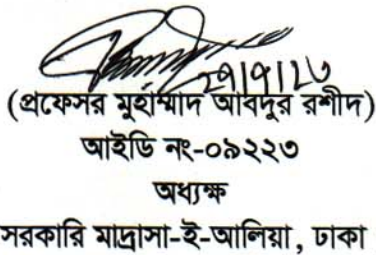 (প্রফেসর মুহাম্মাদ আবদুর রশীদ)
আইডি নং-০৯২২৩
অধ্যক্ষ
সরকারি মাদ্রাসা-ই-আলিয়া, ঢাকা